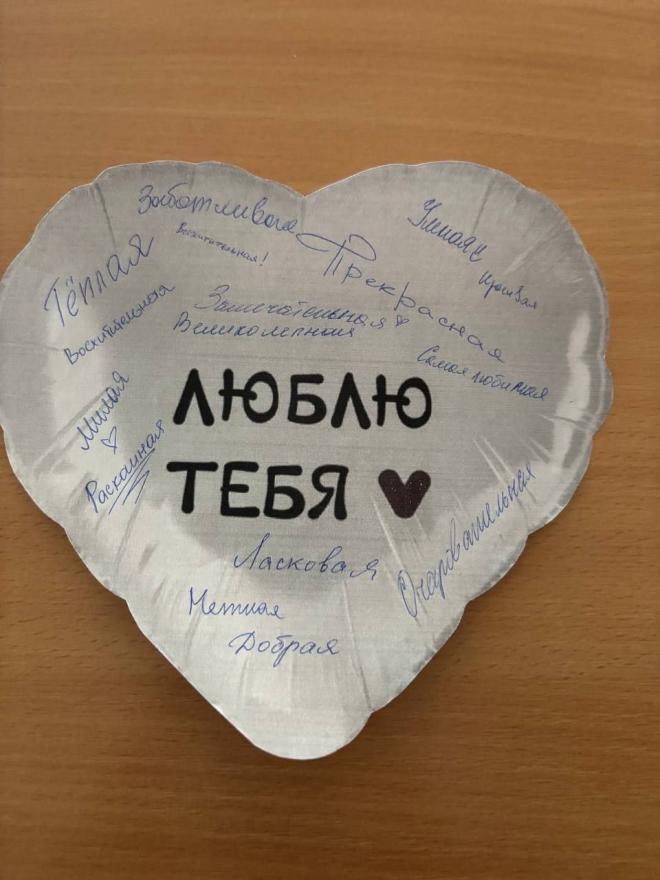 Заботливая
Восхитительная!
Умная
Красивая
Прекрасная
Тёплая
Восхитительная
Замечательная
Великолепная
Самая любимая
Милая ♡
Раскашная
ЛЮБЛЮ
ТЕБЯ ♥
Очаровательная
Ласковая
Нежная
Добрая